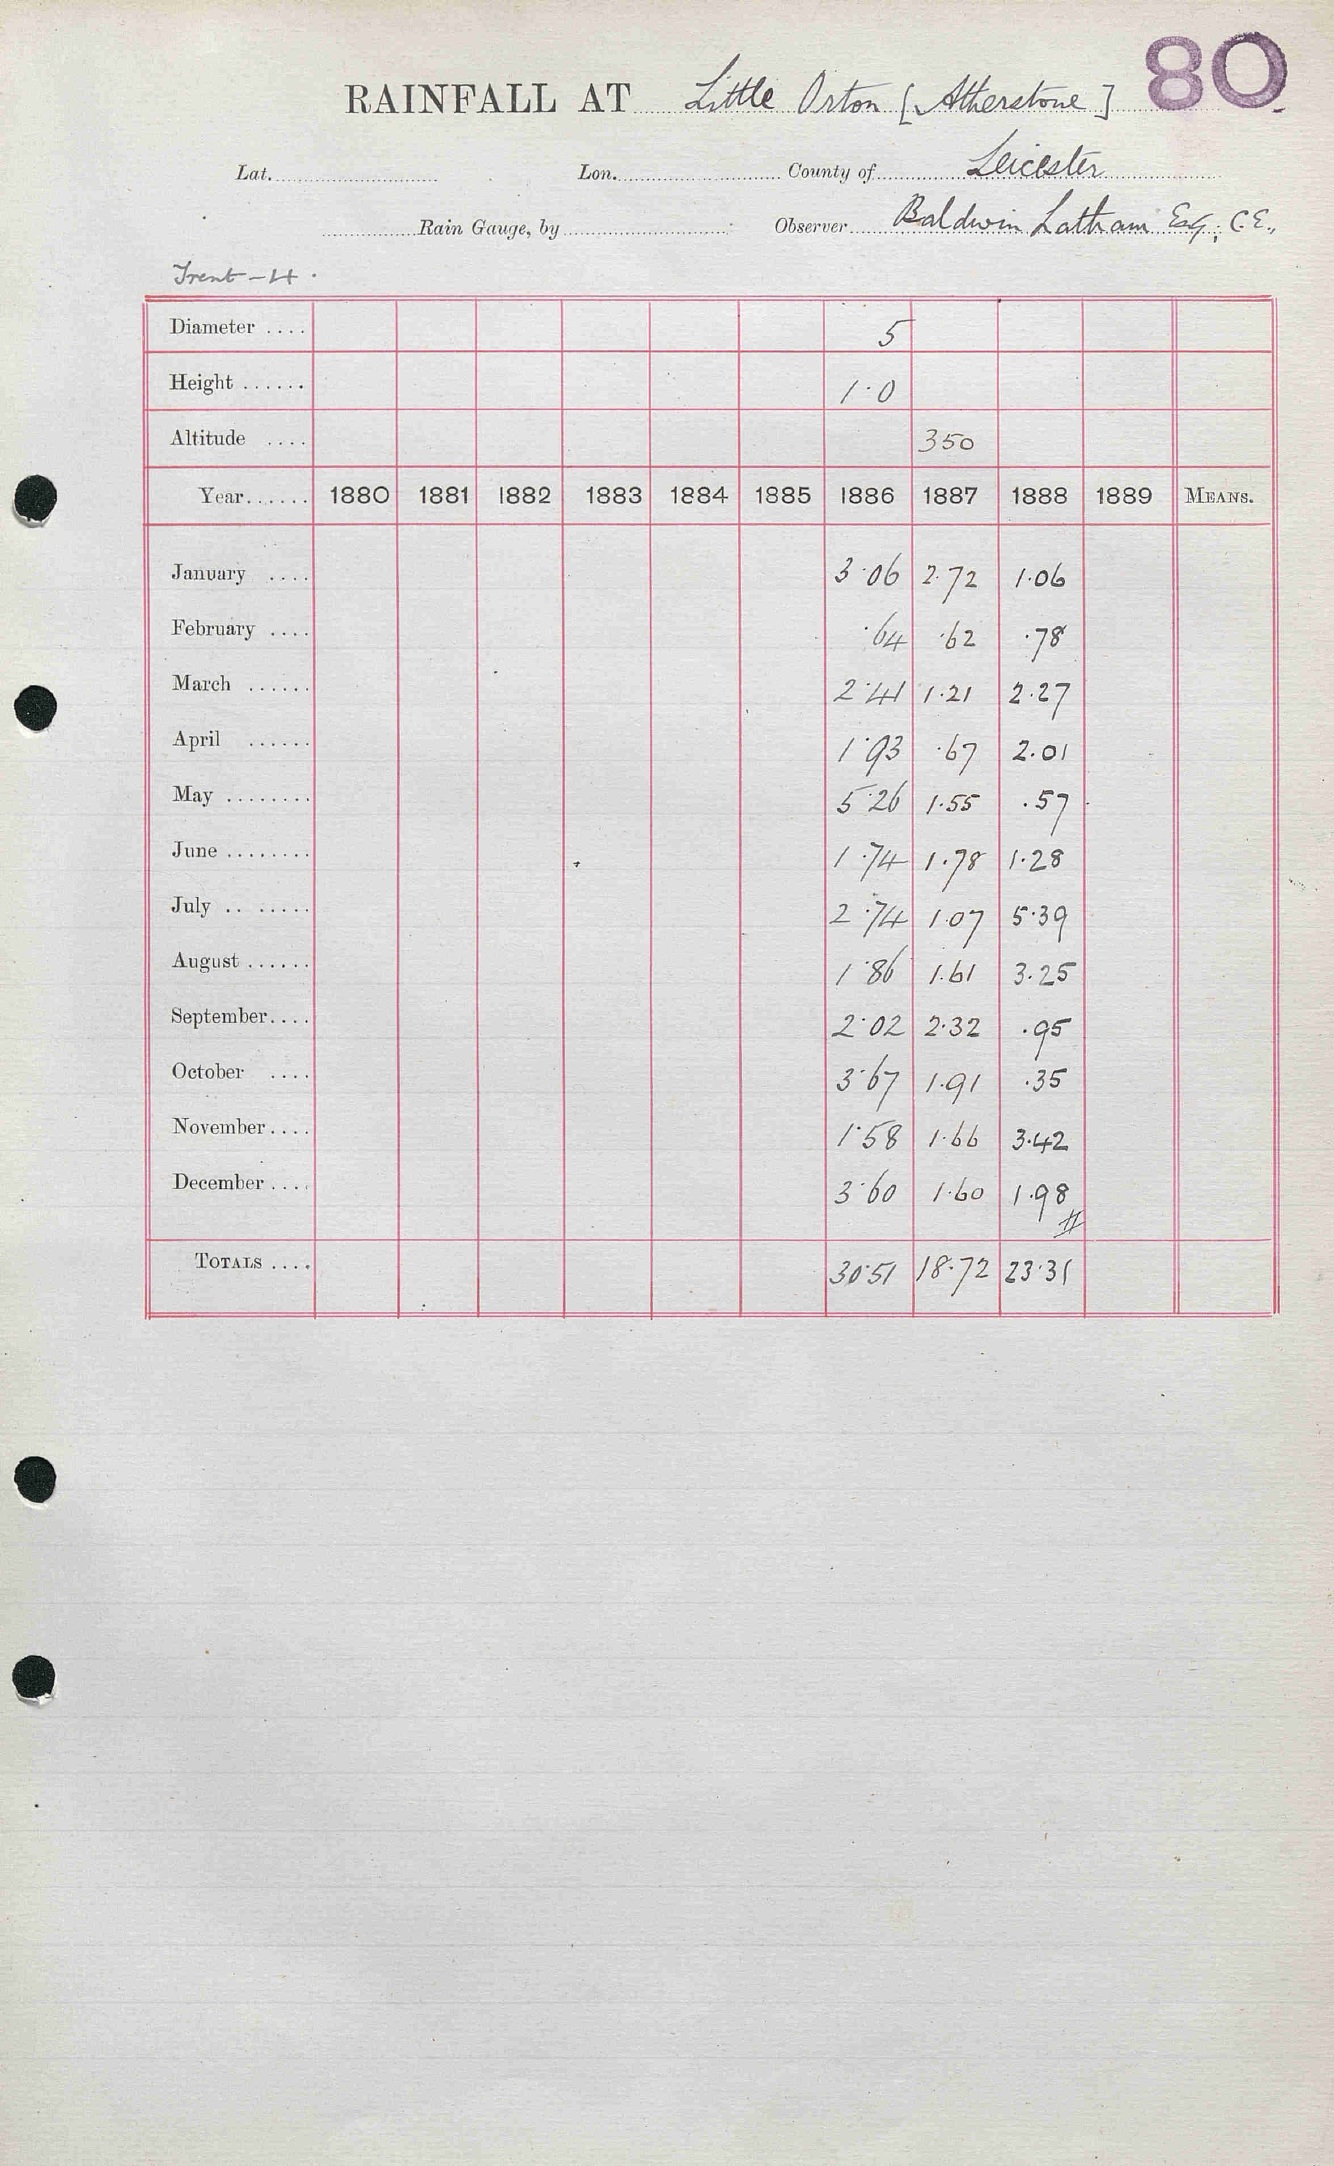 80
RAINFALL AT Little Orton [Atherstone]
Lat. Lon. County of Leicester
Rain Gauge, by Observer Baldwin Latham Esq., C.E.,
Trent - 4.
Diameter .... 5
Height ...... 1.0
Altitude .... 350
Year...... 1880 1881 1882 1883 1884 1885 1886 1887 1888 1889 MEANS.
January .... 3.06 2.72 1.06
February .... .64 .62 .78
March ...... 2.41 1.21 2.27
April ...... 1.93 .67 2.01
May ........ 5.26 1.55 .57
June ........ 1.74 1.78 1.28
July .. ..... 2.74 1.07 5.39
August ...... 1.86 1.61 3.25
September.... 2.02 2.32 .95
October .... 3.67 1.91 .35
November.... 1.58 1.66 3.42
December.... 3.60 1.60 1.98
TOTALS .... 30.51 18.72 23.31